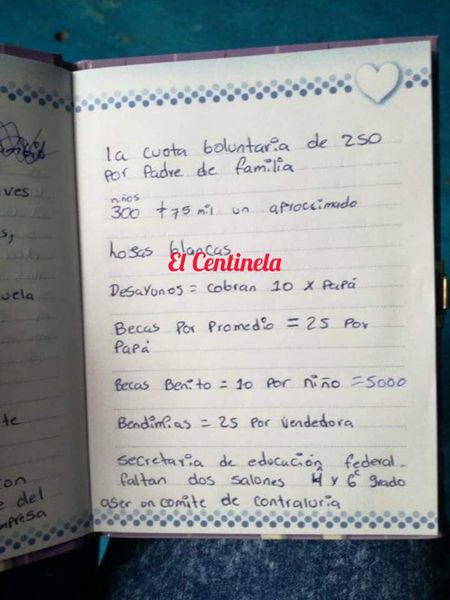 ves
s,
uela
te
on
e del
mpresa
la cuota boluntaria de 250
por Padre de familia
niños
300 +75 mil un aproccimado
hojas blancas
El Centinela
Desayunos = cobran 10 x Papá
Becas Por Promedio = 25 Por
Papá
Becas Benito = 10 por niño = 5000
Bendimias = 25 por vendedora
secretaria de educación federal.
faltan dos salones 4 y 6º grado
aser un comite de contraluria